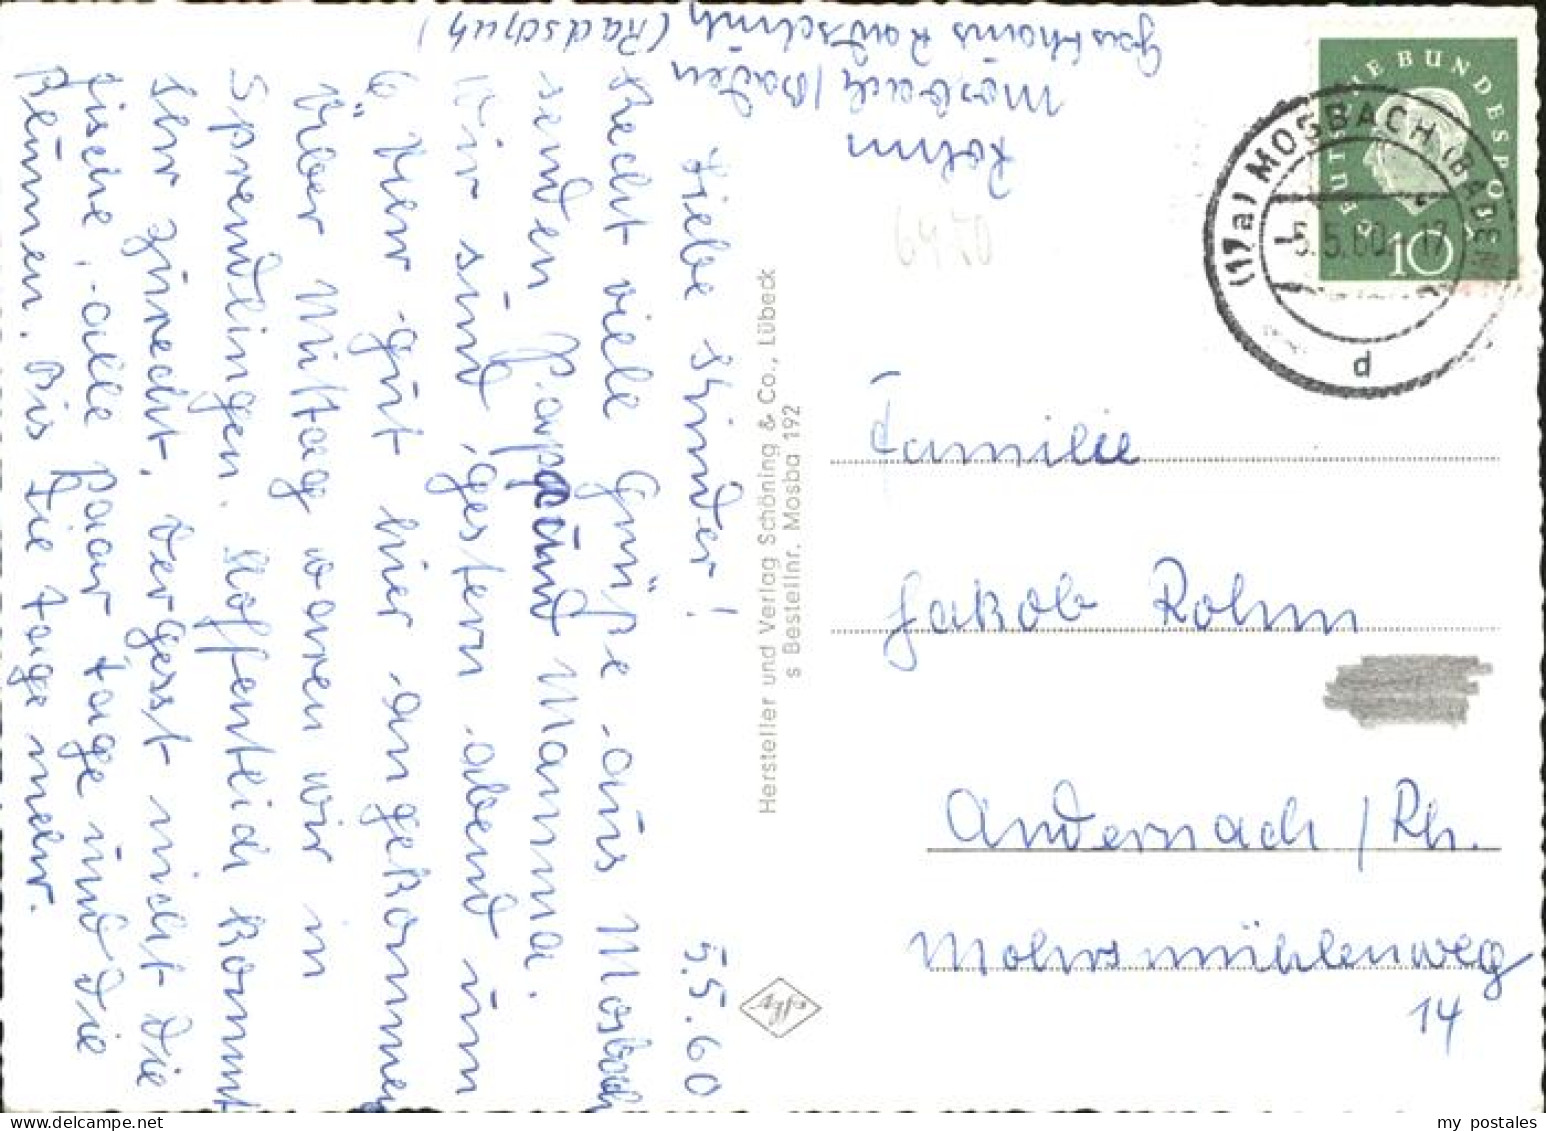 5.5.60
Liebe Kinder!
Recht viele Grüße aus Mosbach
senden Papa und Mamma.
Wir sind gestern abend um
6 Uhr gut hier angekommen
Über Mittag waren wir in
Sprendlingen. Hoffentlich kommt
Ihr zurecht. Vergesst nicht die
Fische, alle paar Tage und die
Blumen. Bis die Tage mehr.
Rohm
Mosbach/Baden
Gasthaus Radschuh (Radschuh)
Hersteller und Verlag Schöning & Co., Lübeck
s Bestellnr. Mosba 192
DEUTSCHE BUNDESPOST
10
(17a) MOSBACH (BADEN)
5.5.60.-17
d
6950
Familie
Jakob Rohm
Andernach/Rh.
Mohrsmühlenweg
14
my postales